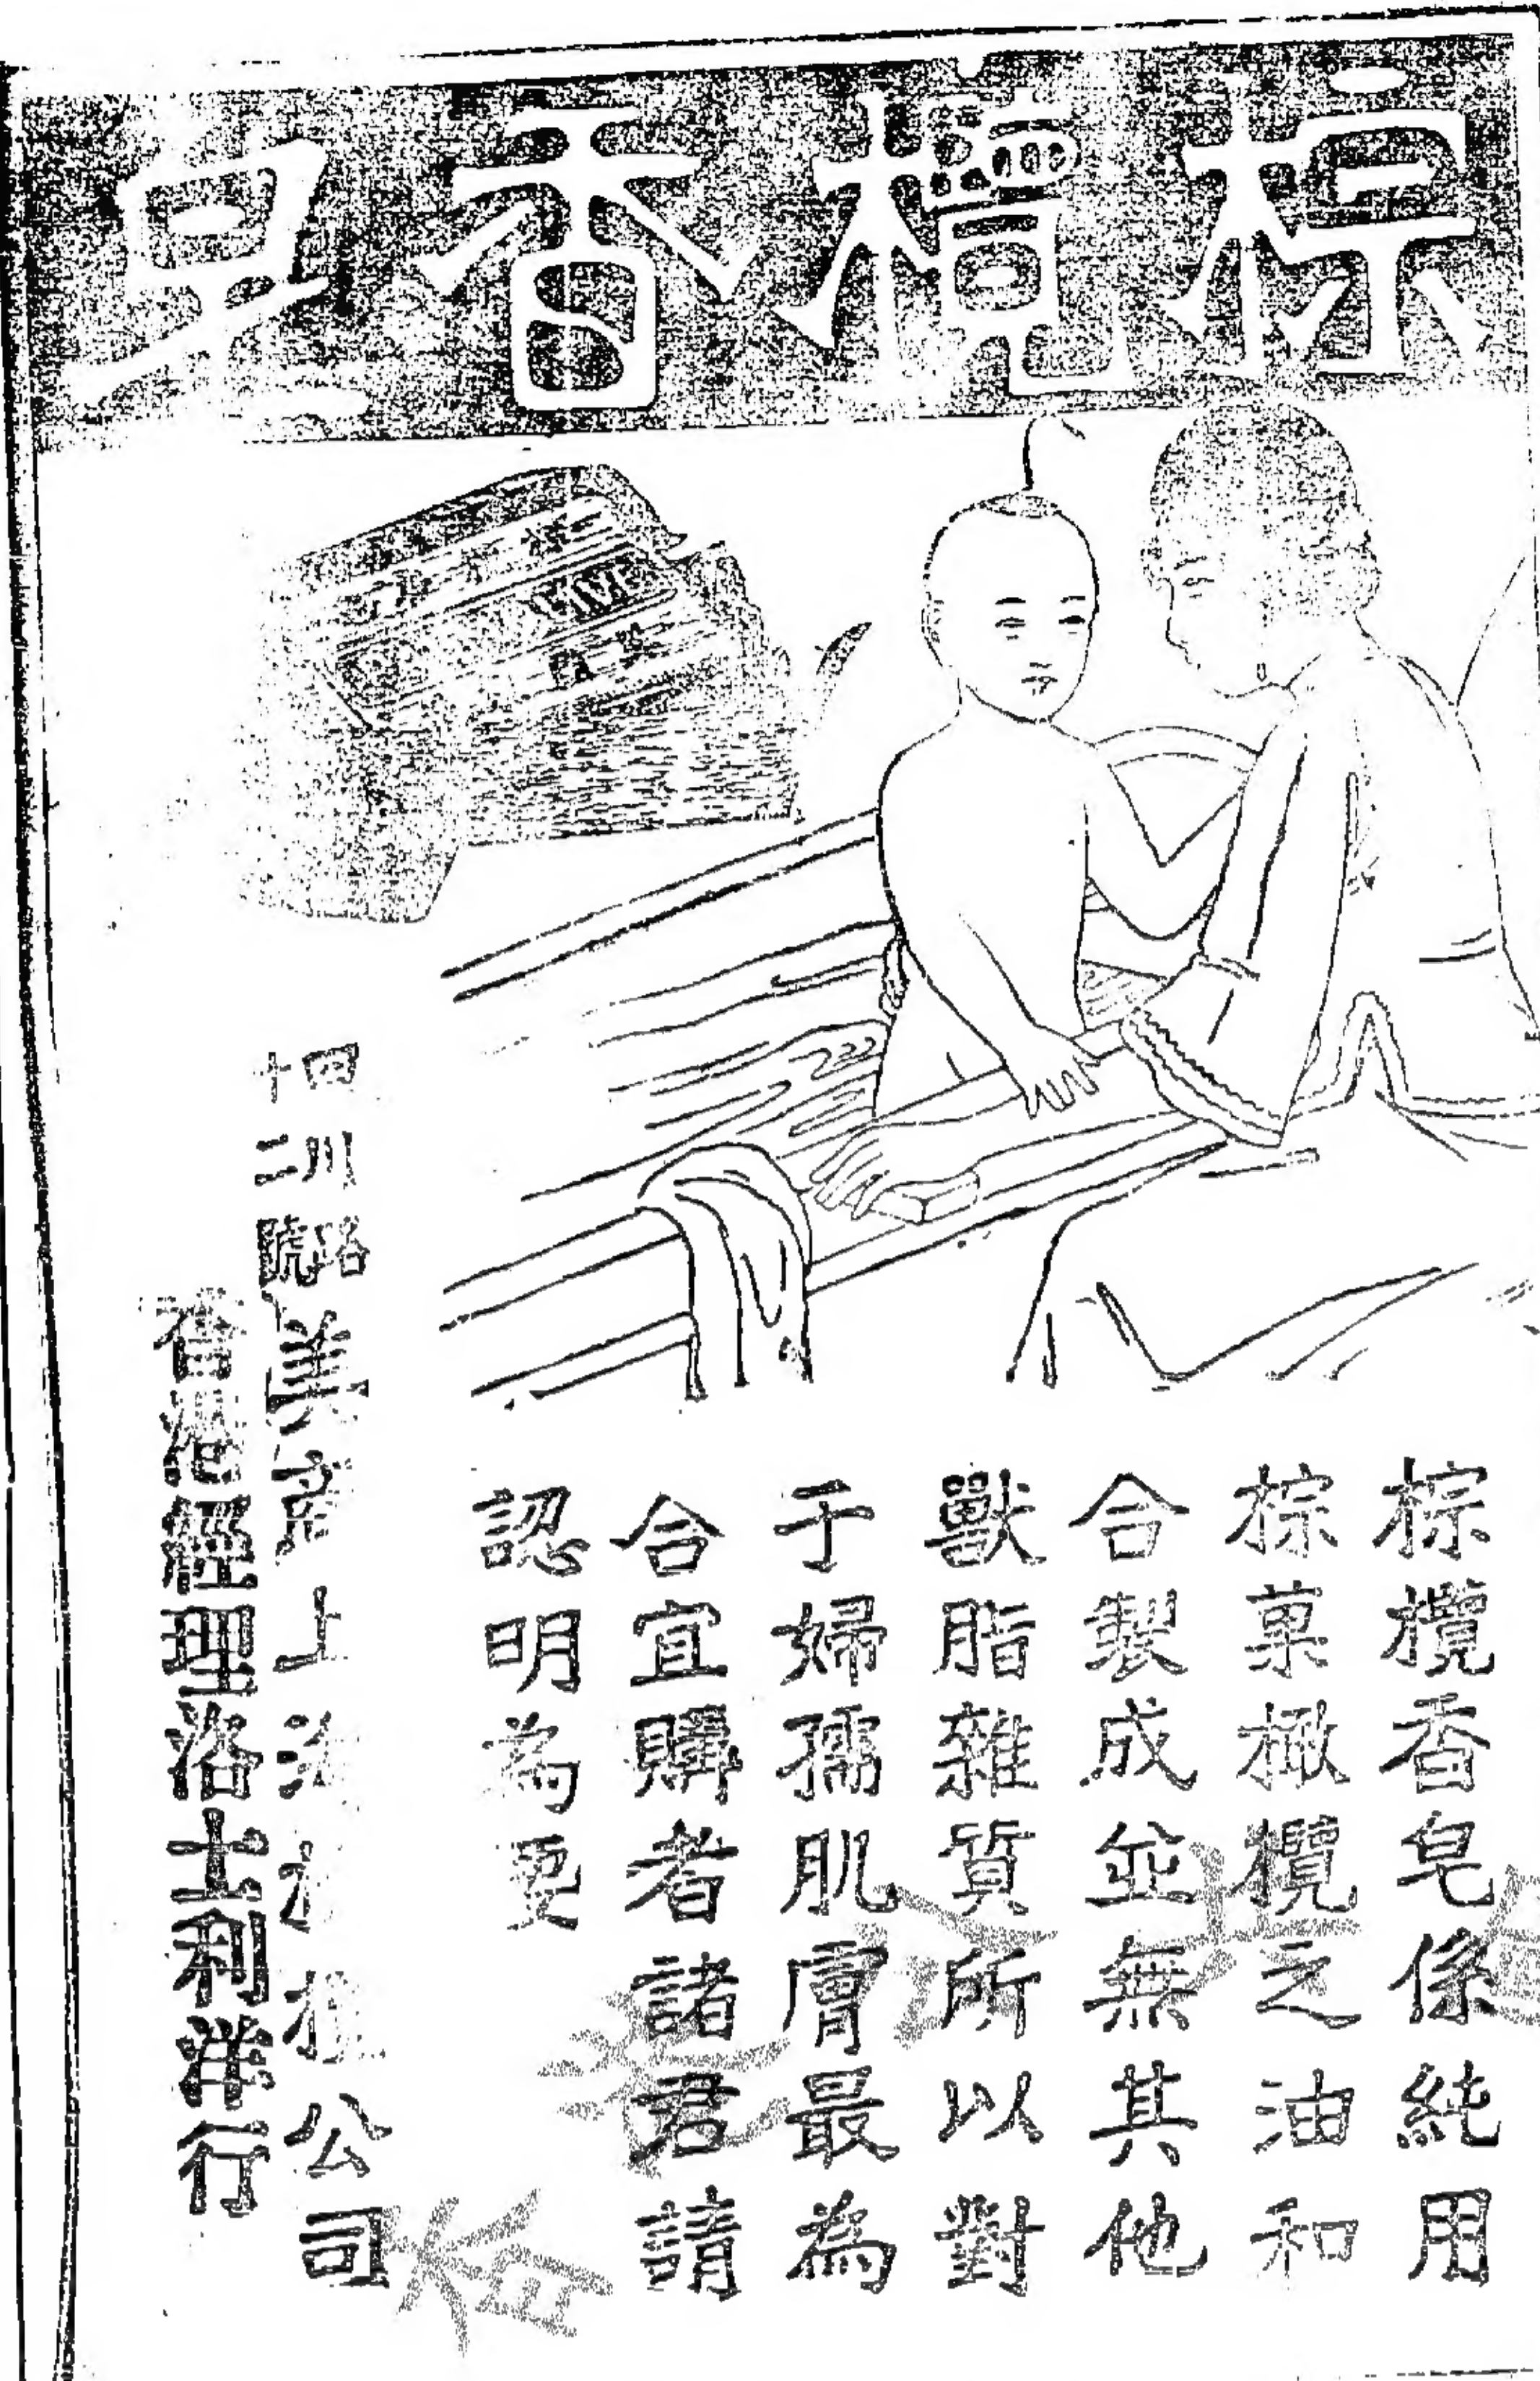 棕欖香皂
棕欖香皂係純用
棕菓橄欖之油和
合製成並無其他
獸脂雜質所以對
于婦孺肌膚最為
合宜購者諸君請
認明為要
四川路
十二號
美商上海棕欖公司
香港經理洛士利洋行